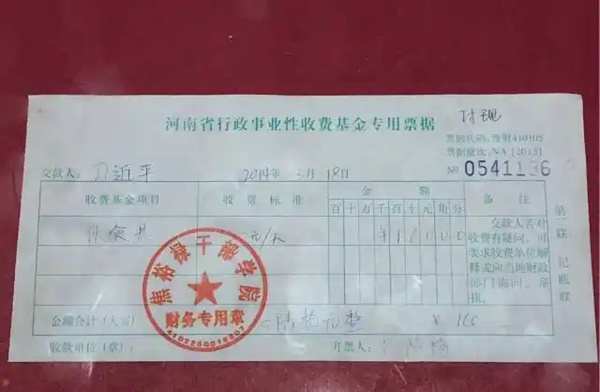 河南省行政事业性收费基金专用票据
付现
票据代码:豫财410105
票据批次:NA [2013]
交款人: 习近平 2014年 3月 18日 № 0541196
收费基金项目 收费标准 金额 备注
百十万千百十元角分
伙食费 元/天 ¥ 1 6 0 0 0
交款人若对
收费有疑问,可
要求收费单位解
释或向当地财政
部门询问、举
报。
第一联 记账联
焦裕禄干部学院
财务专用章
4102250016807
金额合计(人万) 陆拾元整 ¥ 160
收款单位(章): 开票人: